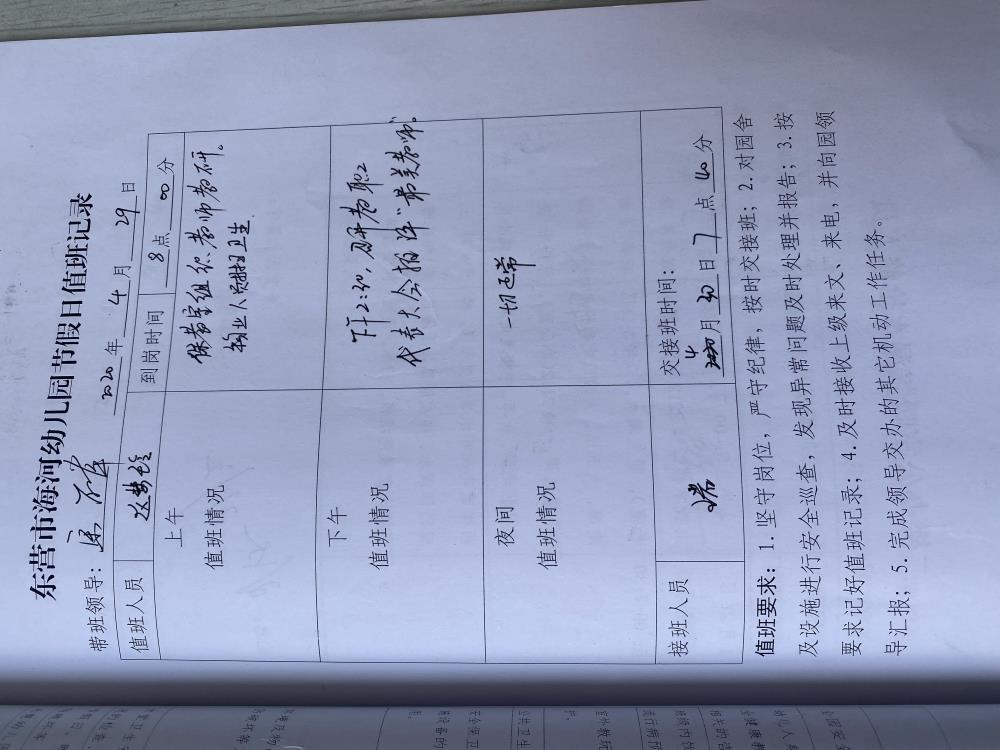 东营市海河幼儿园节假日值班记录
带班领导： 2020年4月29日
值班人员 到岗时间 8点00分
上午
值班情况
保教室组织教师教研。
物业人员打扫卫生
下午
值班情况
下午2:40,召开教职工
代表大会推选“最美教师”。
夜间
值班情况
一切正常
接班人员 交接班时间：
4月30日7点40分
值班要求：1.坚守岗位，严守纪律，按时交接班；2.对园舍
及设施进行安全巡查，发现异常问题及时处理并报告；3.按
要求记好值班记录；4.及时接收上级来文、来电，并向园领
导汇报；5.完成领导交办的其它机动工作任务。